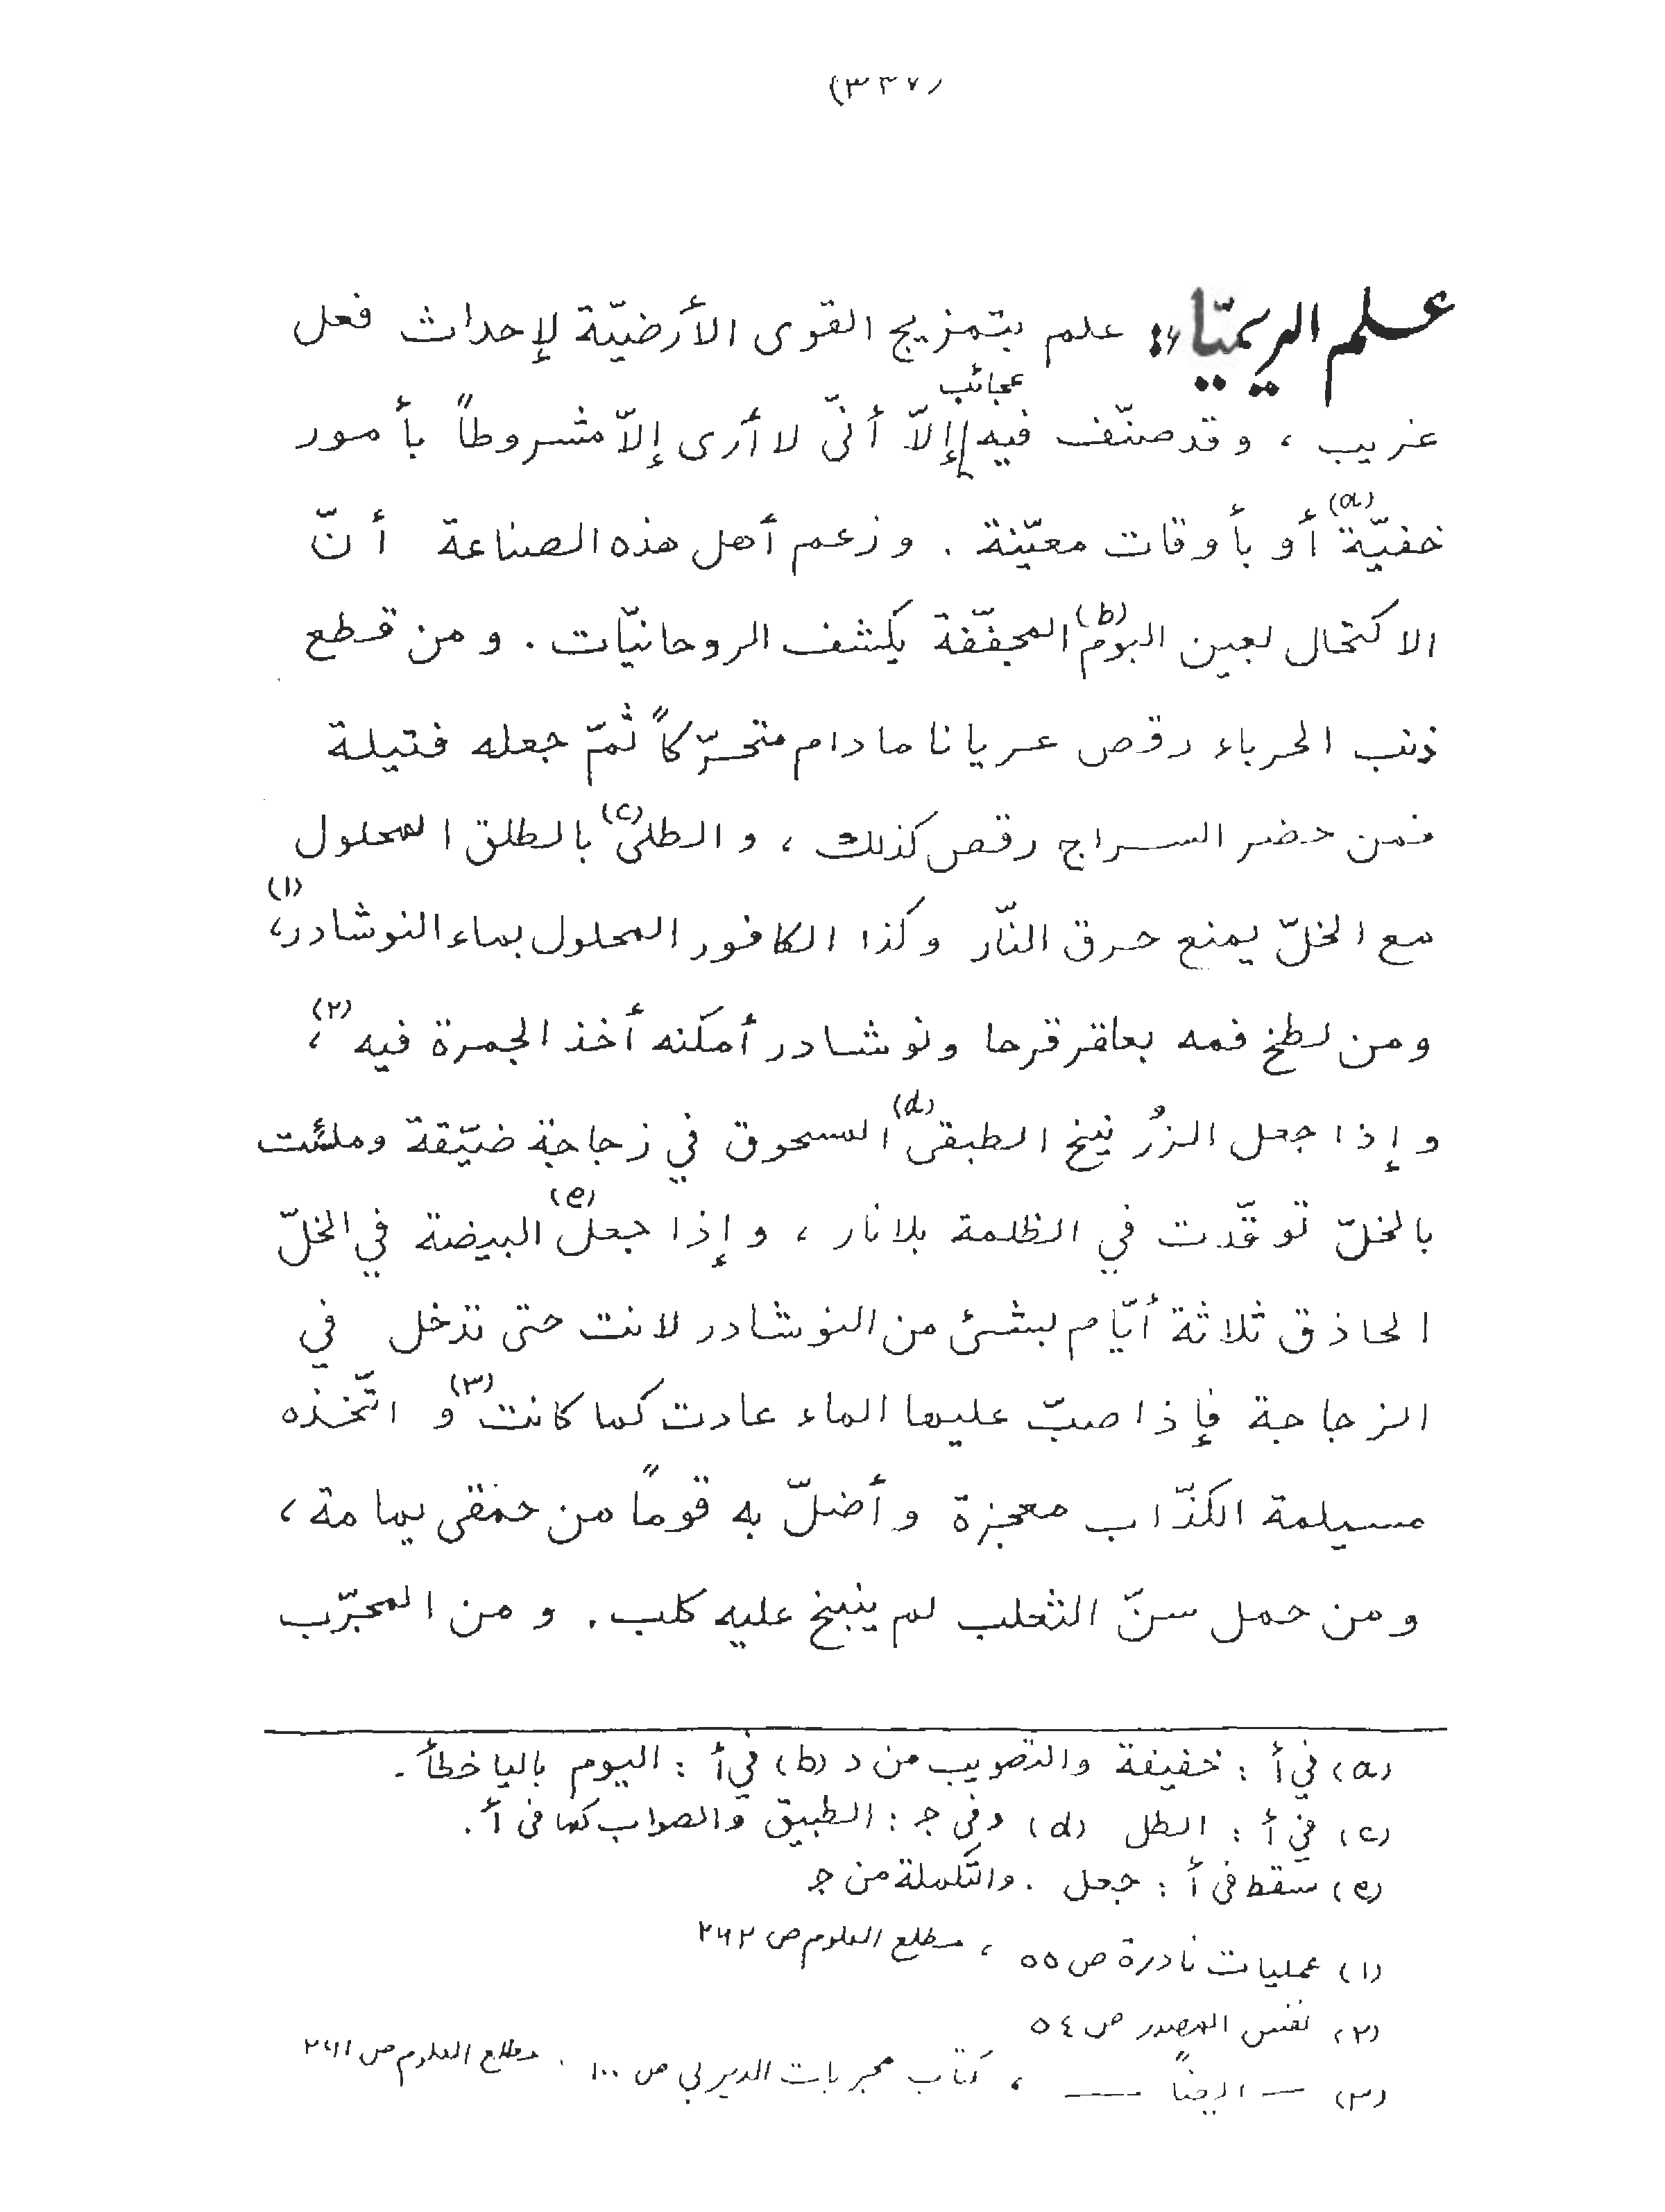 (٣٣٧)
علم الريميّاء: علم بتمزيج القوى الأرضيّة لإحداث فعل
عجائب
غريب ، وقد صنّف فيه إلاّ أنّي لا أرى إلاّ مشروطاً بأمور
خفيّة(a) أو بأوقات معيّنة . وزعم أهل هذه الصناعة أنّ
الاكتحال بعين البوم(b) المجفّفة يكشف الروحانيّات . ومن قطع
ذنب الحرباء رقص عريانا مادام متحرّكاً ثمّ جعله فتيلة
فمن حضر السراج رقص كذلك ، والطلى(c) بالطلق المحلول
مع الخلّ يمنع حرق النّار وكذا الكافور المحلول بماء النوشادر،(١)
ومن لطخ فمه بعاقرقرحا ونوشادر أمكنه أخذ الجمرة فيه ،(٢)
وإذا جعل الزُرنيخ الطبقى(d) المسحوق في زجاجة ضيّقة وملئت
بالخلّ توقّدت في الظلمة بلا نار ، وإذا جعل(e) البيضة في الخلّ
الحاذق ثلاثة أيّام بشئ من النوشادر لانت حتى تدخل في
الزجاجة فإذا صبّ عليها الماء عادت كما كانت(٣) و اتّخذه
مسيلمة الكذّاب معجزة وأضلّ به قوماً من حمقى يمامة ،
ومن حمل سنّ الثعلب لم ينبخ عليه كلب . ومن المجرّب
(a) في أ : خفيفة والتصويب من د (b) في أ : اليوم باليا خطأ .
(c) في أ : الطل (d) وفي ج : الطبيق والصواب كما في أ .
(e) سقط في أ : جعل . والتكملة من ج
(١) عمليات نادرة ص ٥٥ ، مطلع العلوم ص ٢٦٢
(٢) نفس المصدر ص ٥٤
(٣) — ايضاً — ، كتاب مجربات الديربي ص ١٠٠ . مطلع العلوم ص ٢٦١